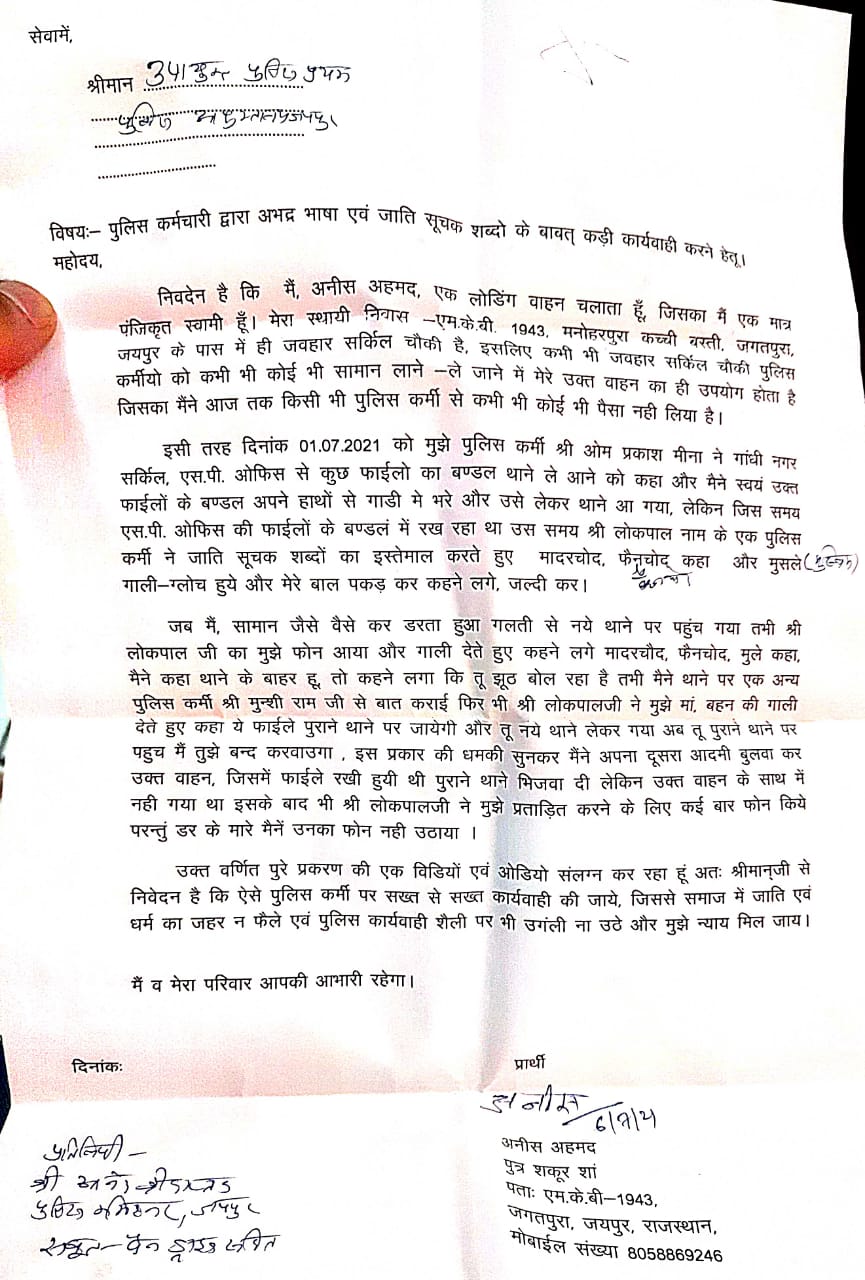 सेवामें,
श्रीमान उपायुक्त पुलिस प्रथम
पुलिस जयपुर
विषयः– पुलिस कर्मचारी द्वारा अभद्र भाषा एवं जाति सूचक शब्दो के बावत् कड़ी कार्यवाही करने हेतू।
महोदय,
निवदेन है कि मैं, अनीस अहमद, एक लोडिंग वाहन चलाता हूँ, जिसका मैं एक मात्र
पंजिकृत स्वामी हूँ। मेरा स्थायी निवास –एम.के.बी. 1943, मनोहरपुरा कच्ची बस्ती, जगतपुरा,
जयपुर के पास में ही जवहार सर्किल चौकी है, इसलिए कभी भी जवहार सर्किल चौकी पुलिस
कर्मीयो को कभी भी कोई भी सामान लाने –ले जाने में मेरे उक्त वाहन का ही उपयोग होता है
जिसका मैंने आज तक किसी भी पुलिस कर्मी से कभी भी कोई भी पैसा नही लिया है।
इसी तरह दिनांक 01.07.2021 को मुझे पुलिस कर्मी श्री ओम प्रकाश मीना ने गांधी नगर
सर्किल, एस.पी. ओफिस से कुछ फाईलो का बण्डल थाने ले आने को कहा और मैने स्वयं उक्त
फाईलों के बण्डल अपने हाथों से गाडी मे भरे और उसे लेकर थाने आ गया, लेकिन जिस समय
एस.पी. ओफिस की फाईलों के बण्डलं में रख रहा था उस समय श्री लोकपाल नाम के एक पुलिस
कर्मी ने जाति सूचक शब्दों का इस्तेमाल करते हुए मादरचोद, फैनचोद् कहा और मुसले (मुस्लिम)
गाली–ग्लोच हुये और मेरे बाल पकड़ कर कहने लगे, जल्दी कर।
जब मैं, सामान जैसे वैसे कर डरता हुआ गलती से नये थाने पर पहुंच गया तभी श्री
लोकपाल जी का मुझे फोन आया और गाली देते हुए कहने लगे मादरचौद, फैनचोद, मुले कहा,
मैने कहा थाने के बाहर हू, तो कहने लगा कि तू झूठ बोल रहा है तभी मैने थाने पर एक अन्य
पुलिस कर्मी श्री मुन्शी राम जी से बात कराई फिर भी श्री लोकपालजी ने मुझे मां, बहन की गाली
देते हुए कहा ये फाईले पुराने थाने पर जायेगी और तू नये थाने लेकर गया अब तू पुराने थाने पर
पहुच मैं तुझे बन्द करवाउगा , इस प्रकार की धमकी सुनकर मैंने अपना दूसरा आदमी बुलवा कर
उक्त वाहन, जिसमें फाईले रखी हुयी थी पुराने थाने भिजवा दी लेकिन उक्त वाहन के साथ में
नही गया था इसके बाद भी श्री लोकपालजी ने मुझे प्रताड़ित करने के लिए कई बार फोन किये
परन्तुं डर के मारे मैनें उनका फोन नही उठाया ।
उक्त वर्णित पुरे प्रकरण की एक विडियों एवं ओडियो संलग्न कर रहा हूं अतः श्रीमान्जी से
निवेदन है कि ऐसे पुलिस कर्मी पर सख्त से सख्त कार्यवाही की जाये, जिससे समाज में जाति एवं
धर्म का जहर न फैले एवं पुलिस कार्यवाही शैली पर भी उगंली ना उठे और मुझे न्याय मिल जाय।
मैं व मेरा परिवार आपकी आभारी रहेगा।
दिनांकः
प्रार्थी
अनीस
6/7/21
अनीस अहमद
पुत्र शकूर शां
पताः एम.के.बी–1943,
जगतपुरा, जयपुर, राजस्थान,
मोबाईल संख्या 8058869246
प्रतिलिपी –
श्री
पुलिस कमिश्नर, जयपुर
सबूत – पेन ड्राइव सहित